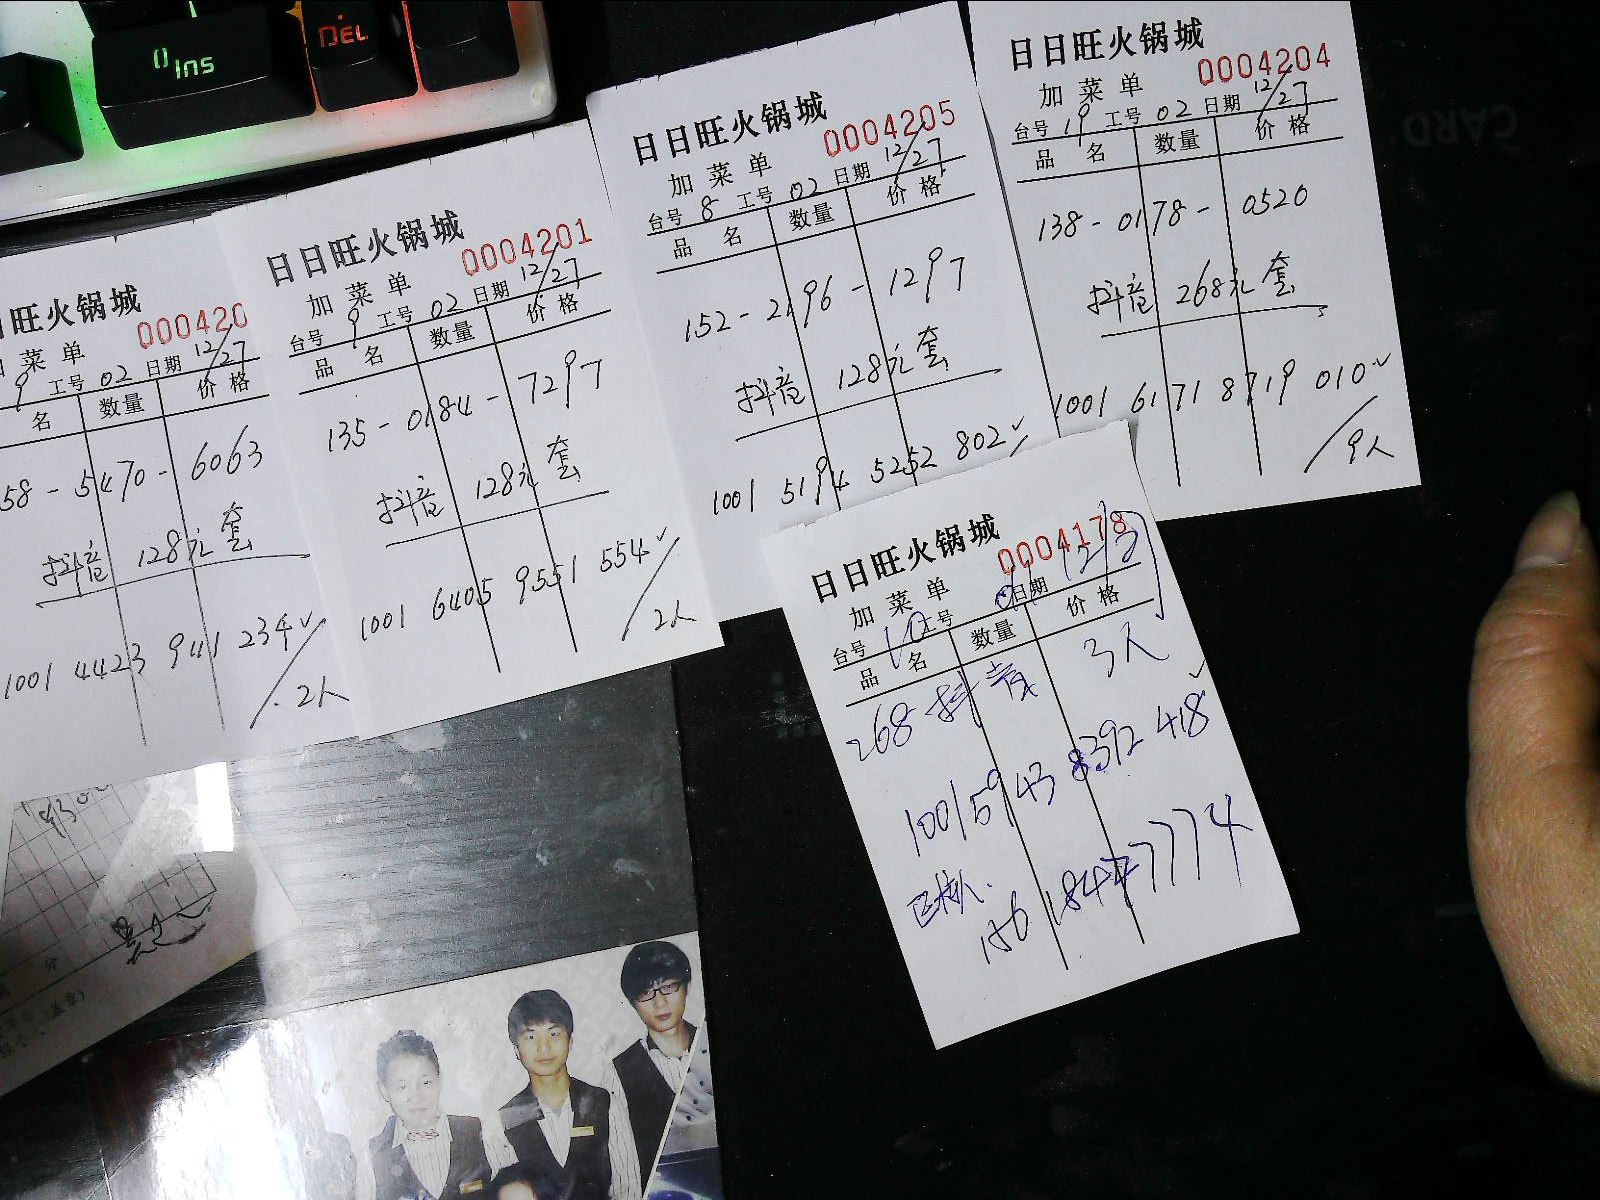 0 Ins
DEL
日旺火锅城
000420
菜单
12/27
9 工号 02 日期
名 数量 价格
58-5470-6063
抖音 128元套
1001 4423 941 234✓
2人
日日旺火锅城
0004201
加菜单
12/27
台号 9 工号 02 日期
品名 数量 价格
135-0184-7297
抖音 128元套
1001 6405 9551 554✓
2人
日日旺火锅城
0004205
加菜单
12/27
台号 8 工号 02 日期
品名 数量 价格
152-2196-1297
抖音 128元套
1001 5194 5252 802✓
日日旺火锅城
0004204
加菜单
12/27
台号 19 工号 02 日期
品名 数量 价格
138-0178-0520
抖音 268元套
1001 6171 8719 010✓
9人
日日旺火锅城
0004178
加菜单
台号 工号 日期
品名 数量 价格
268抖音 3人
1001 5943 8392 418✓
156 1844 7774
CARD